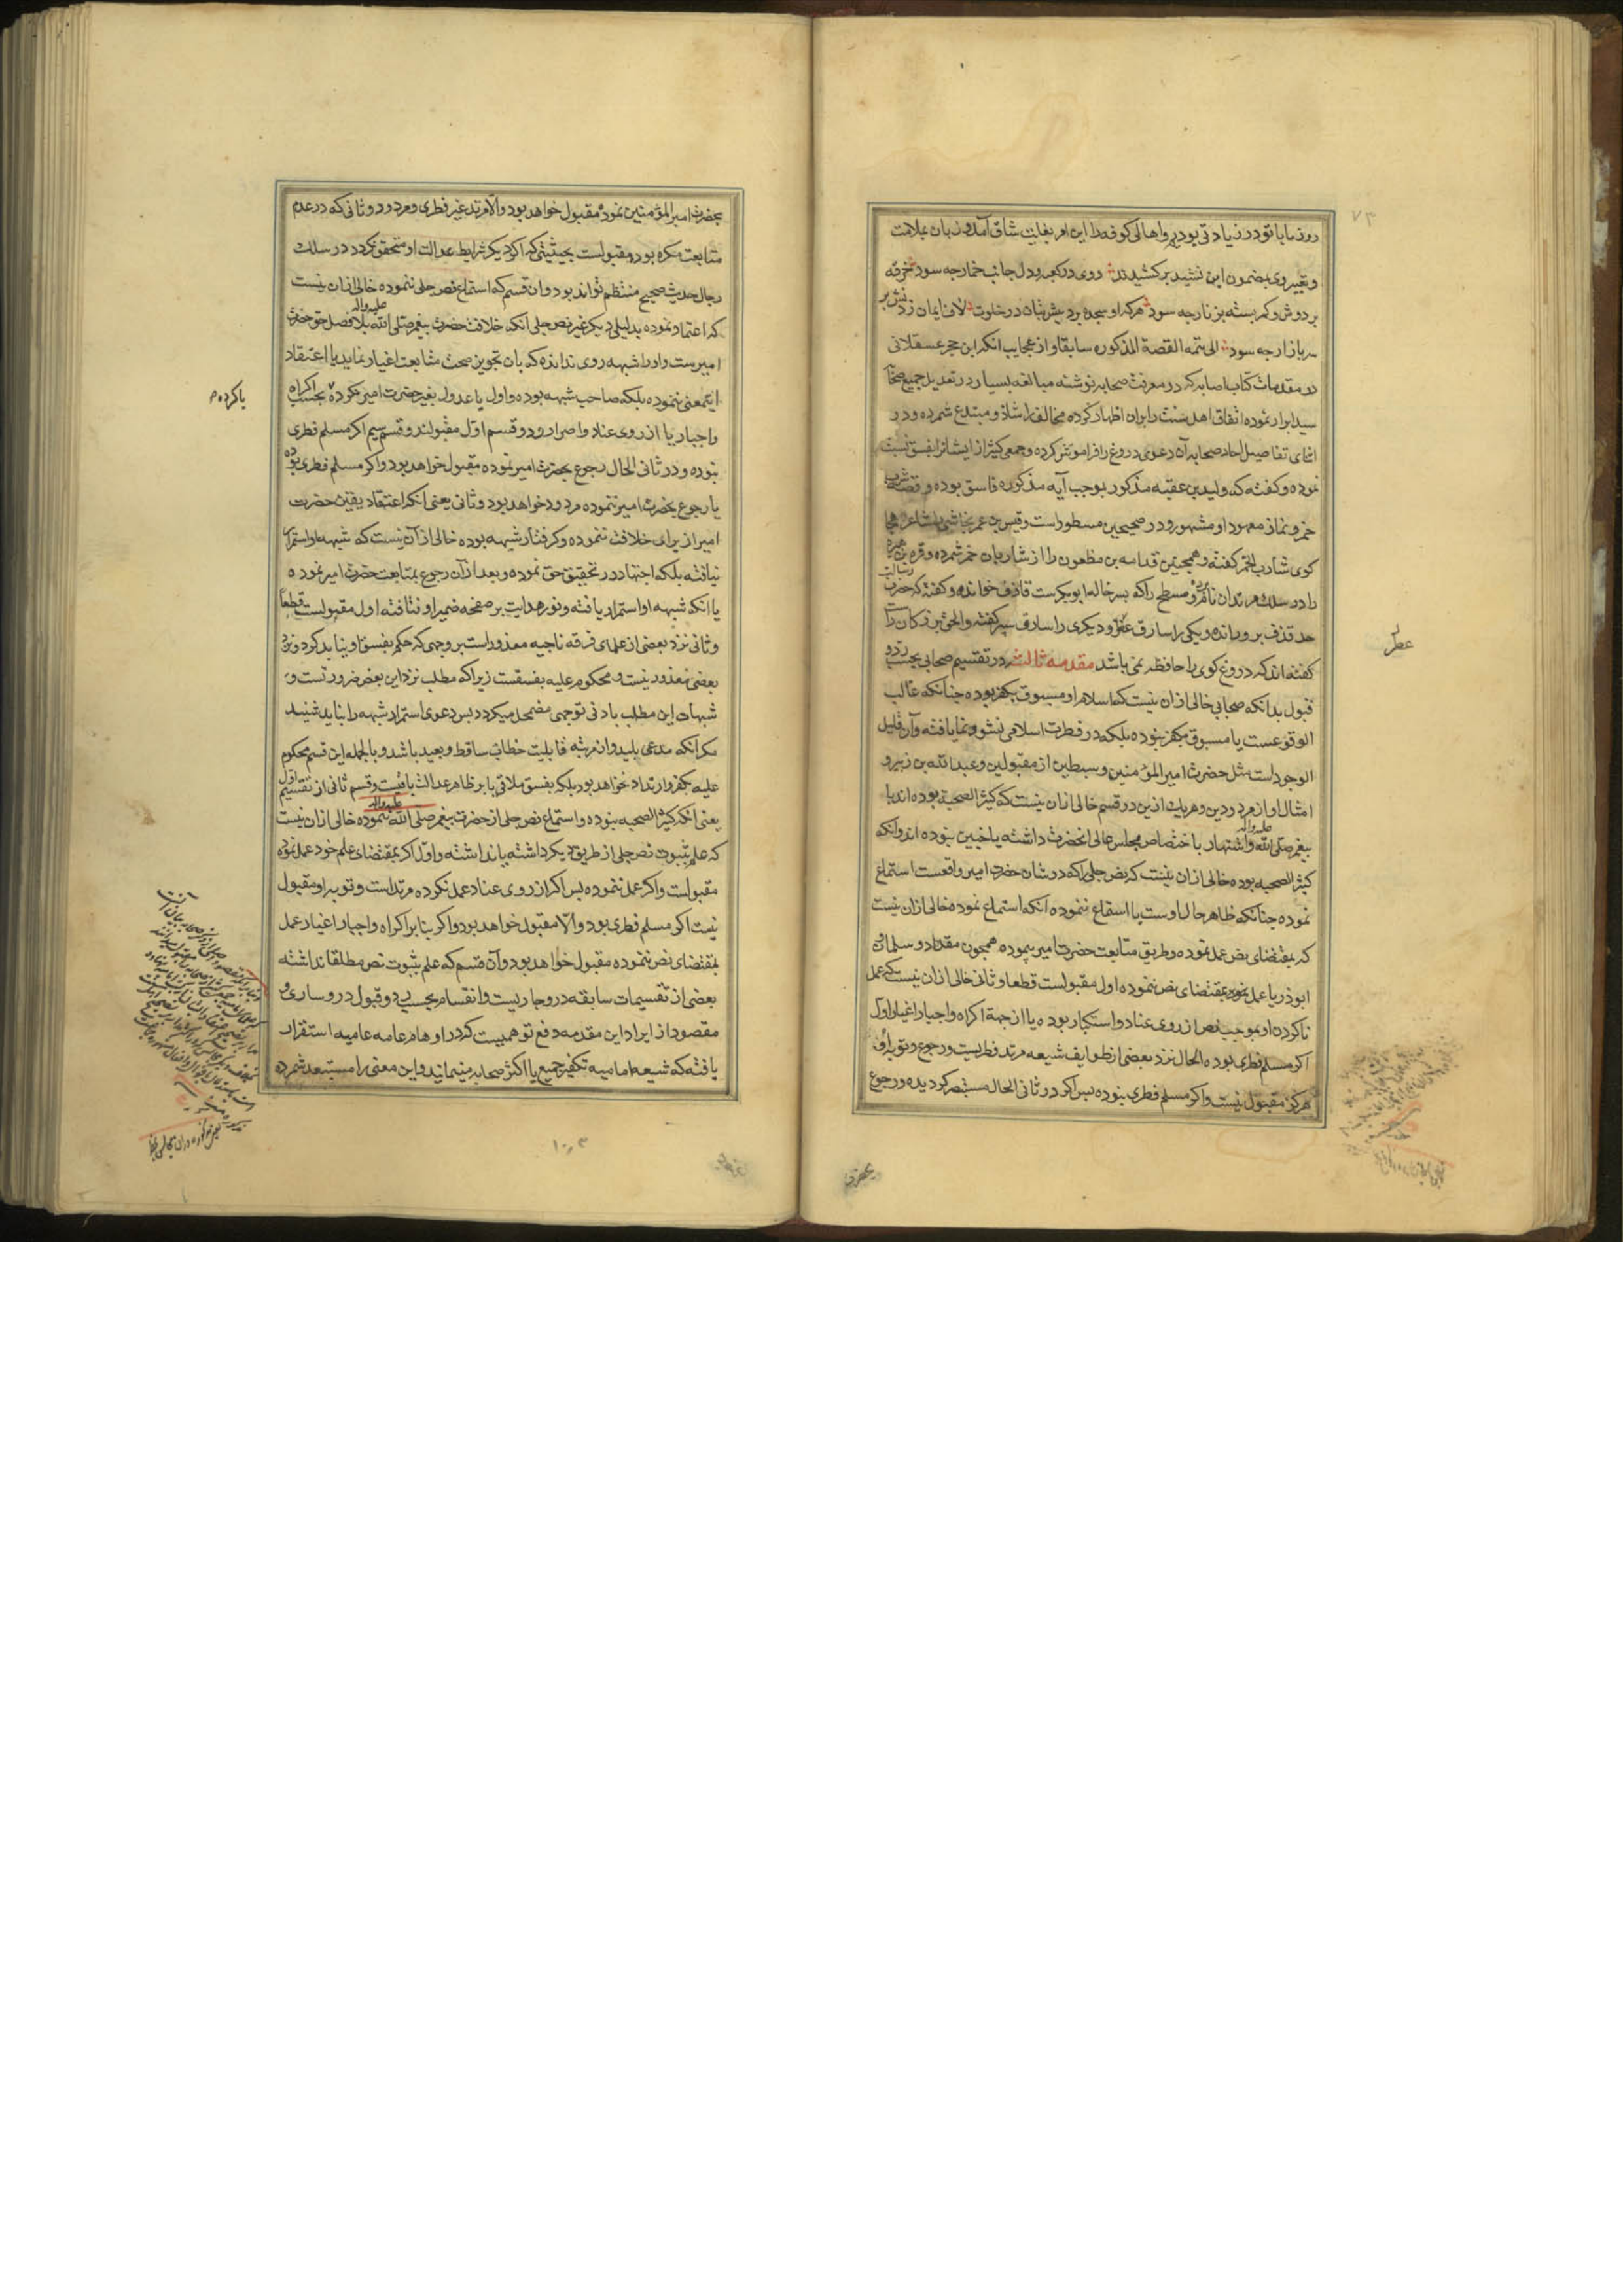 روز مابا تو در زیادتی بود و اهالی کوفه را این امر بغایت شاق آمده زبان بملامت
و تغییر وی بمضمون این نشید برکشیدند روی در کعبه و دل جانب خمار چه سود خرقه
بر دوش و کمر بسته بزنار چه سود هر که او سجده برد پیش بتان در خلوت لاف ایمان زدنش بر
سر بازار چه سود الی تتمه القصة المذکوره سابقا و از عجایب انکه ابن حجر عسقلانی
در مقدمات کتاب اصابه که در معرفت صحابه نوشته مبالغه بسیار در تعدیل جمیع صحابه
سید ابرار نموده اتفاق اهل سنت را بران اظهار کرده مخالف را شاذ و مبتدع شمرده و در
اثنای تفاصیل احاد صحابه آن دعوی دروغ را فراموش کرده و جمعی کثیر از ایشانرا بفسق نسبت
نموده و گفته که ولید بن عقبه مذکور بموجب آیه مذکوره فاسق بوده و قصه شرب
خمر و نماز معهود او مشهور و در صحیحین مسطور است و قیس بن عمر نجاشی شاعر
کوی شارب الخمر گفته و همچنین قدامه بن مظعون را از شاربان خمر شمرده و قره بن هبیره
را در سلک مرتدان و مسطح را که پسر خاله ابوبکرست قاذف خوانده و گفته که حضرت رسالت
حد قذف برو رانده و یکی را سارق و دیگری را سارق گفته و الحق بزرگان راست
گفته اند که دروغ گوی را حافظه نمی باشد مقدمه ثالث در تقسیم صحابی بحسب رد و
قبول بدانکه صحابی خالی ازان نیست که اسلام او مسبوق بکفر بوده چنانکه غالب
الوقوعست یا مسبوق بکفر نبوده بلکه در فطرت اسلامی نشو و نما یافته و آن قلیل
الوجود است مثل حضرت امیر المؤمنین و سبطین از مقبولین و عبد الله بن زبیر و
امثال او از مردودین و هریک ازین دو قسم خالی ازان نیست که کثیر الصحبة بوده اند با
پیغمبر صلی الله علیه واله و اشتهار با ختصاص مجلس عالی انحضرت داشته یا چنین نبوده اند و انکه
کثیر الصحبه بوده خالی ازان نیست که نص جلی را که در شان حضرت امیر واقعست استماع
نموده چنانکه ظاهر حال اوست یا استماع ننموده آنکه استماع نموده خالی ازان نیست
که بمقتضای نص عمل نموده و طریق متابعت حضرت امیر پیموده همچون مقداد و سلمان و
ابوذر یا عمل بمقتضای نص ننموده اول مقبولست قطعا و ثانی خالی ازان نیست که عمل
ناکردن او بموجب نص از روی عناد و استکبار بوده یا از جهة اکراه و اجبار اغیار اول
اگر مسلم فطری بوده الحال نزد بعضی از طوایف شیعه مرتد فطریست و رجوع و توبه او
هرگز مقبول نیست و اگر مسلم فطری نبوده پس اگر در ثانی الحال مستبصر گردیده و رجوع
بحضرت
بحضرت امیر المؤمنین نموده مقبول خواهد بود و الا مرتد غیر فطری و مردود و ثانی که در عدم
متابعت مکره بوده مقبولست بحیثیتی که اگر دیگر شرایط عدالت او متحقق گردد در سلک
رجال حدیث صحیح منتظم تواند بود و ان قسم که استماع نص جلی ننموده خالی ازان نیست
که اعتماد نموده بدلیلی دیگر غیر نص جلی انکه خلافت حضرت پیغمبر صلی الله علیه واله بلا فصل حق حضرت
امیرست و او را شبهه روی نداده که بان تجویز صحت متابعت اغیار نماید یا اعتقاد
اینمعنی ننموده بلکه صاحب شبهه بوده و اول یا عدول بغیر حضرت امیر نکرده بحسب اکراه
یا کرده م
و اجبار یا از روی عناد و اصرار و دو قسم اول مقبولند و قسم سیم اگر مسلم فطری
نبوده و در ثانی الحال رجوع بحضرت امیر نموده مقبول خواهد بود و اگر مسلم فطری بوده
یا رجوع بحضرت امیر ننموده مردود خواهد بود و ثانی یعنی انکه اعتقاد یقین حضرت
امیر از برای خلافت ننموده و گرفتار شبهه بوده خالی از آن نیست که شبهه او استمرار
نیافته بلکه اجتهاد در تحقیق حق نموده و بعد از آن رجوع بمتابعت حضرت امیر نموده
یا انکه شبهه او استمرار یافته و نور هدایت بر صفحه ضمیر او نتافته اول مقبولست قطعا
و ثانی نزد بعضی از علمای فرقه ناجیه معذور است بر وجهی که حکم بفسق او نباید کرد و نزد
بعضی معذور نیست و محکوم علیه بفسقست زیرا که مطلب نزد این بعض ضرورتست و
شبهات این مطلب بادنی توجهی مضمحل میگردد پس دعوی استمرار شبهه را نباید شنید
مگر آنکه مدعی بلید و از مرتبه قابلیت خطاب ساقط و بعید باشد و بالجمله این قسم محکوم
علیه بکفر و ارتداد نخواهد بود بلکه بفسق ملاقی یا بر ظاهر عدالت باقیست و قسم ثانی از تقسیم اول
یعنی انکه کثیر الصحبه نبوده و استماع نص جلی از حضرت پیغمبر صلی الله علیه واله ننموده خالی ازان نیست
که علم بثبوت نص جلی از طریق دیگر داشته یا نداشته و اول اگر بمقتضای علم خود عمل نموده
مقبولست و اگر عمل ننموده پس اگر از روی عناد عمل نکرده مرتد است و توبه او مقبول
نیست اگر مسلم فطری بود و الا مقبول خواهد بود و اگر بنابر اکراه و اجبار اغیار عمل
بمقتضای نص ننموده مقبول خواهد بود و آن قسم که علم بثبوت نص مطلقا نداشته
بعضی از تقسیمات سابقه درو جاریست و انقسام بحسب رد و قبول درو ساری و
مقصود از ایراد این مقدمه دفع توهمیست که در اوهام عامه عامیه استقرار
یافته که شیعه امامیه تکفیر جمیع یا اکثر صحابه مینمایند و این معنی را مستبعد شمرده